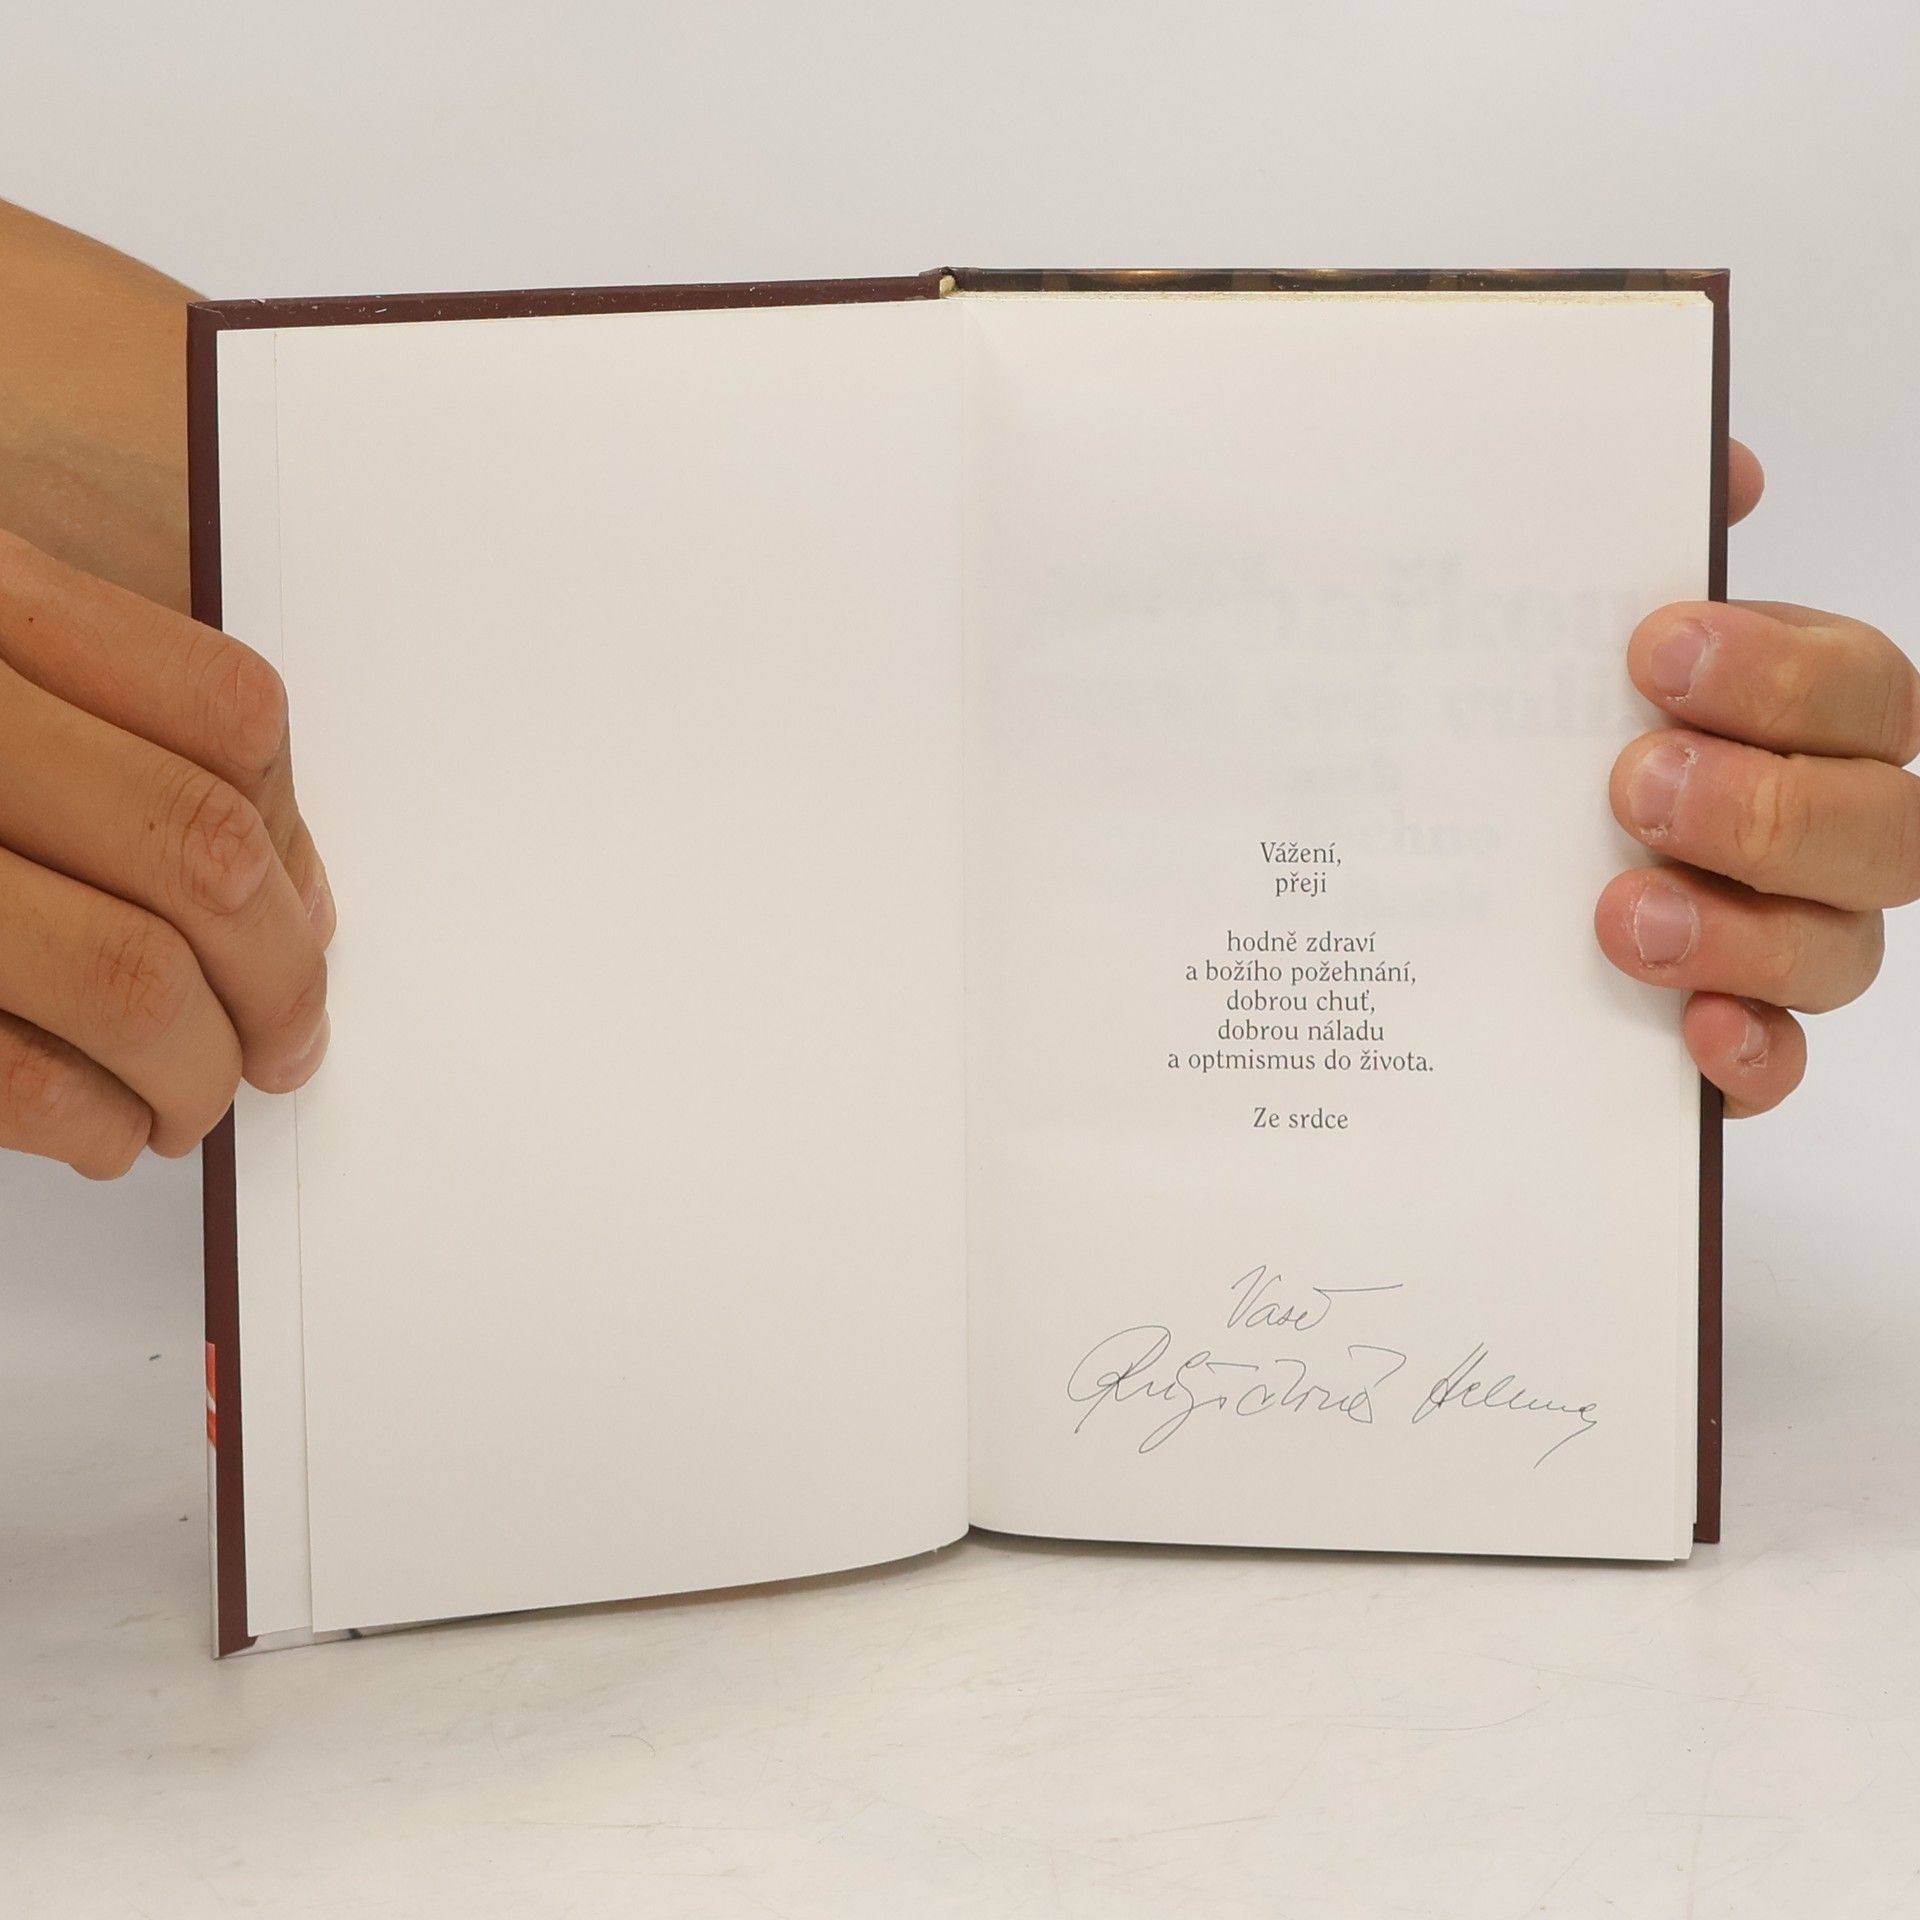 Vážení,
přeji
hodně zdraví
a božího požehnání,
dobrou chuť,
dobrou náladu
a optmismus do života.
Ze srdce
Vaše
Růžičková Helena